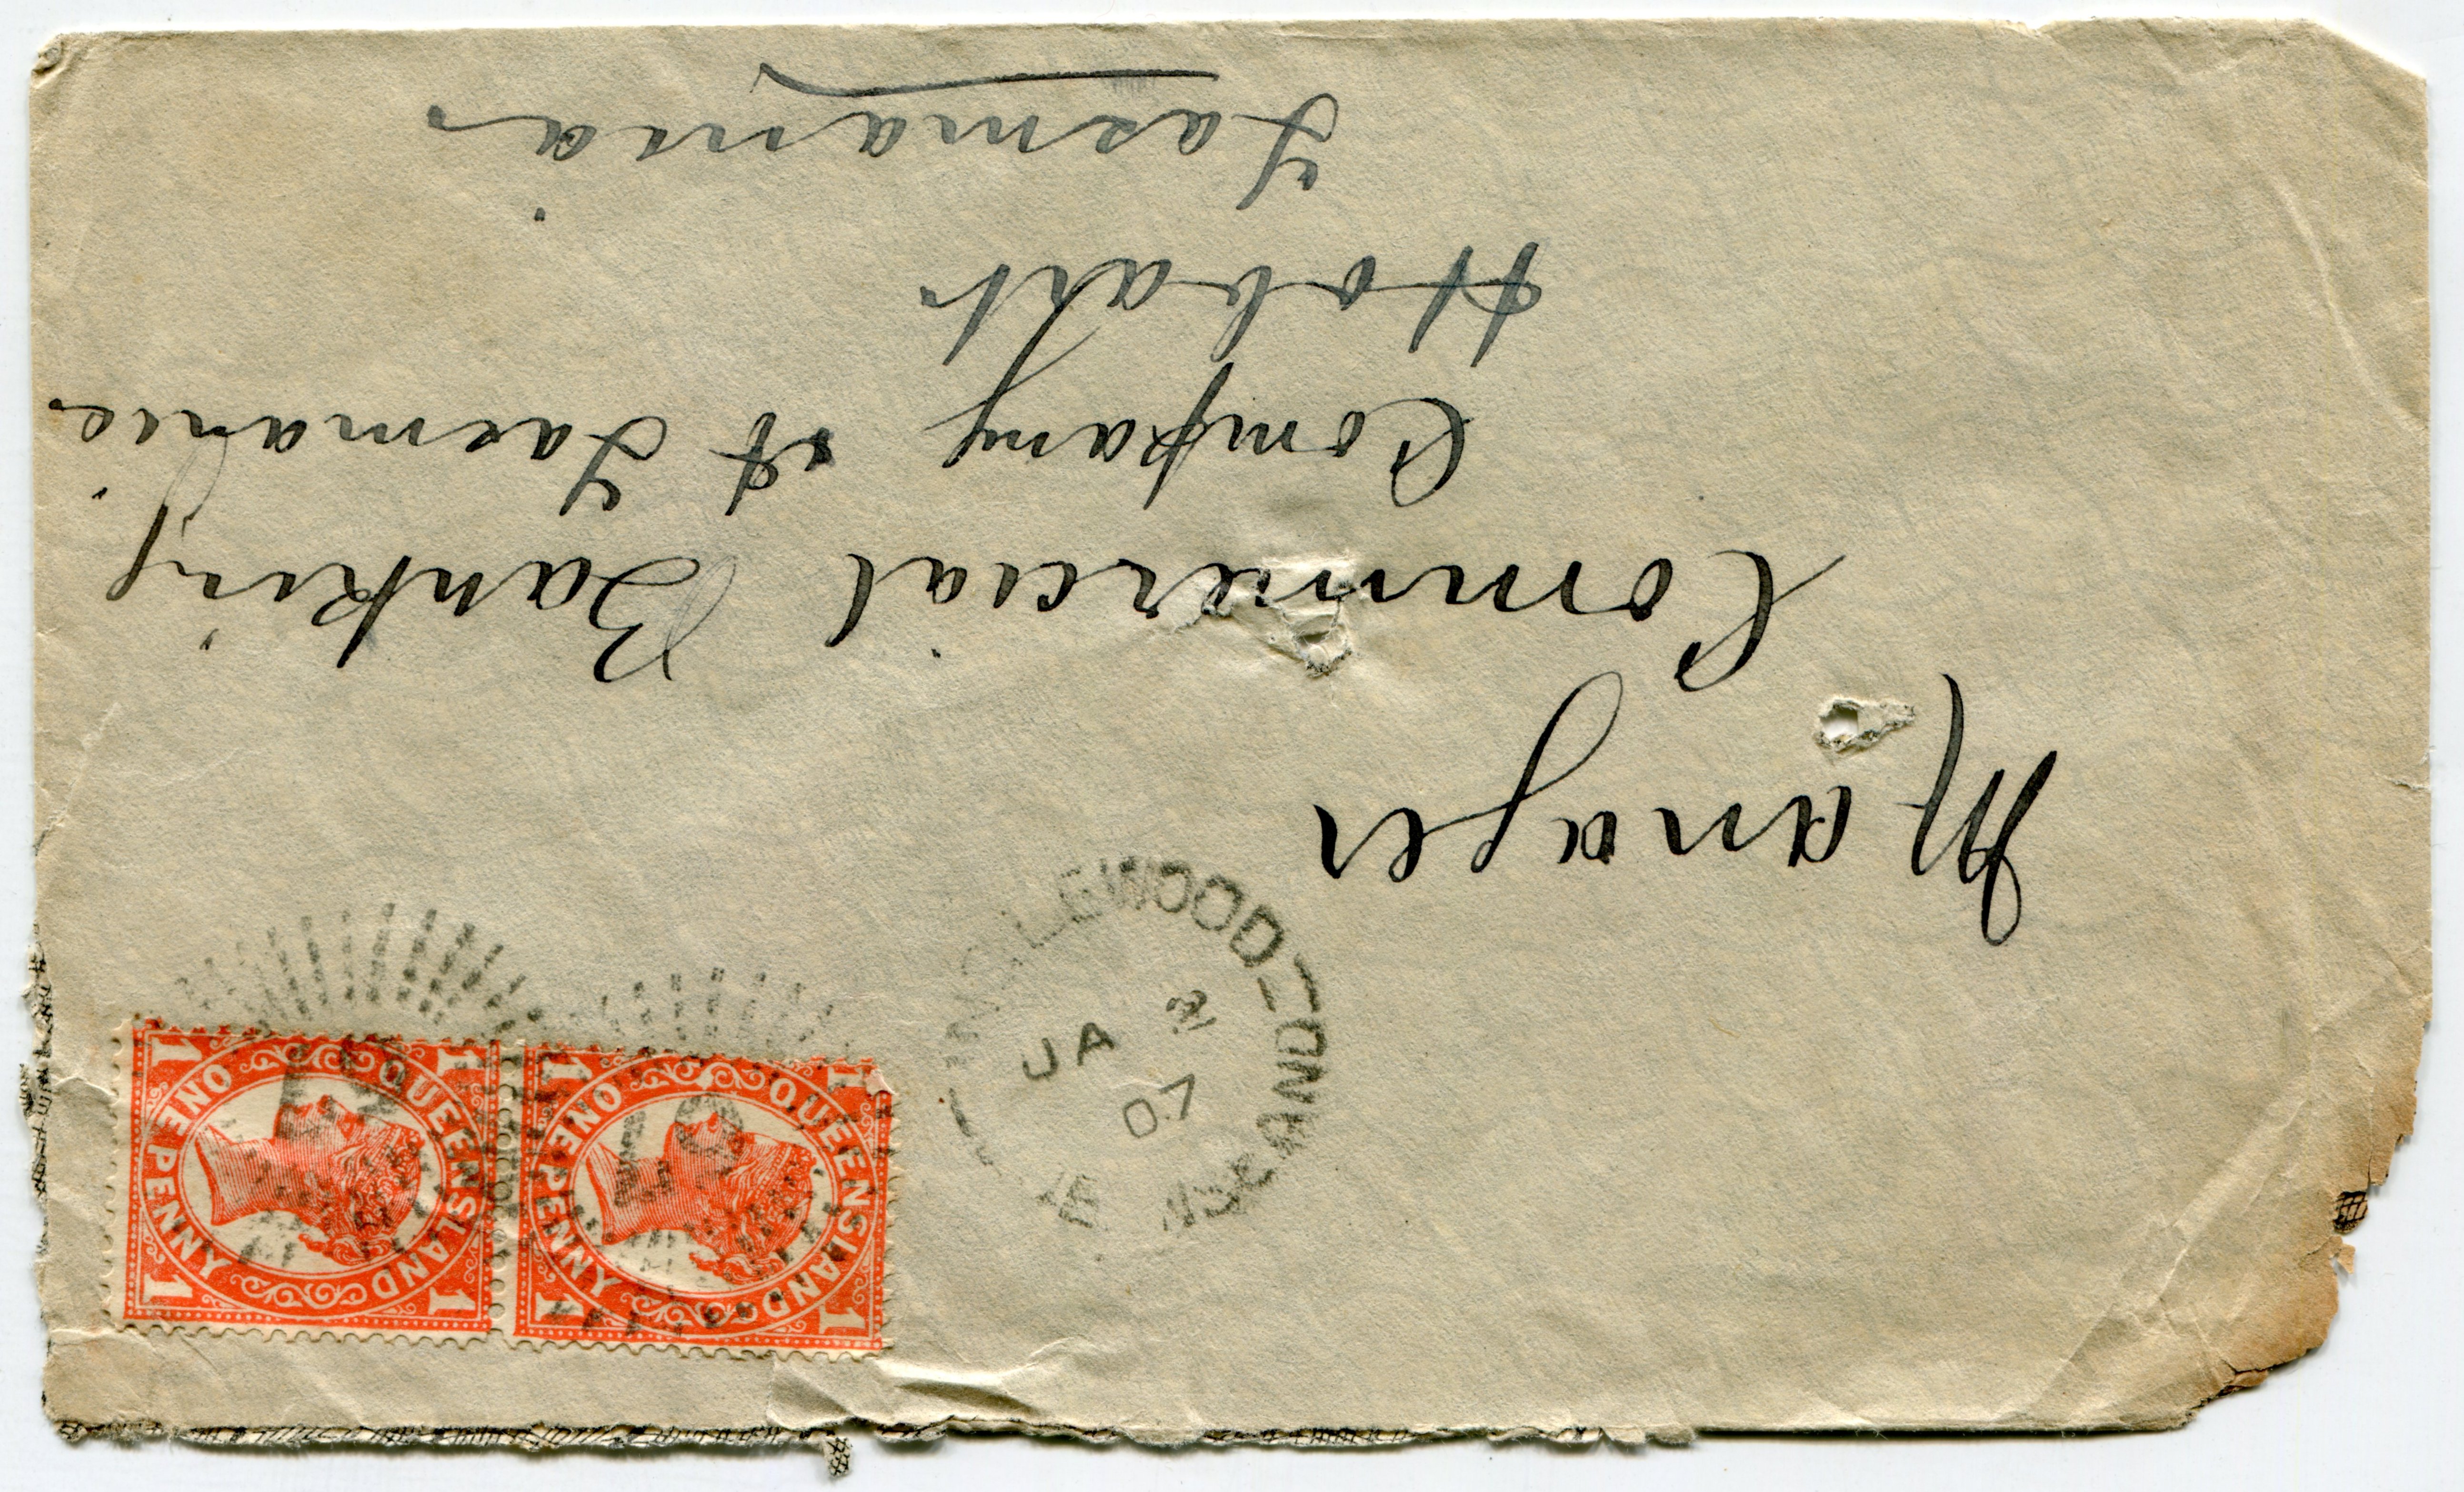 Manager
Commercial Banking
Company of Tasmania
Hobart
Tasmania
INGLEWOOD
JA
07
QUEENSLAND
ONE PENNY
1 1 1 1
QUEENSLAND
ONE PENNY
1 1 1 1